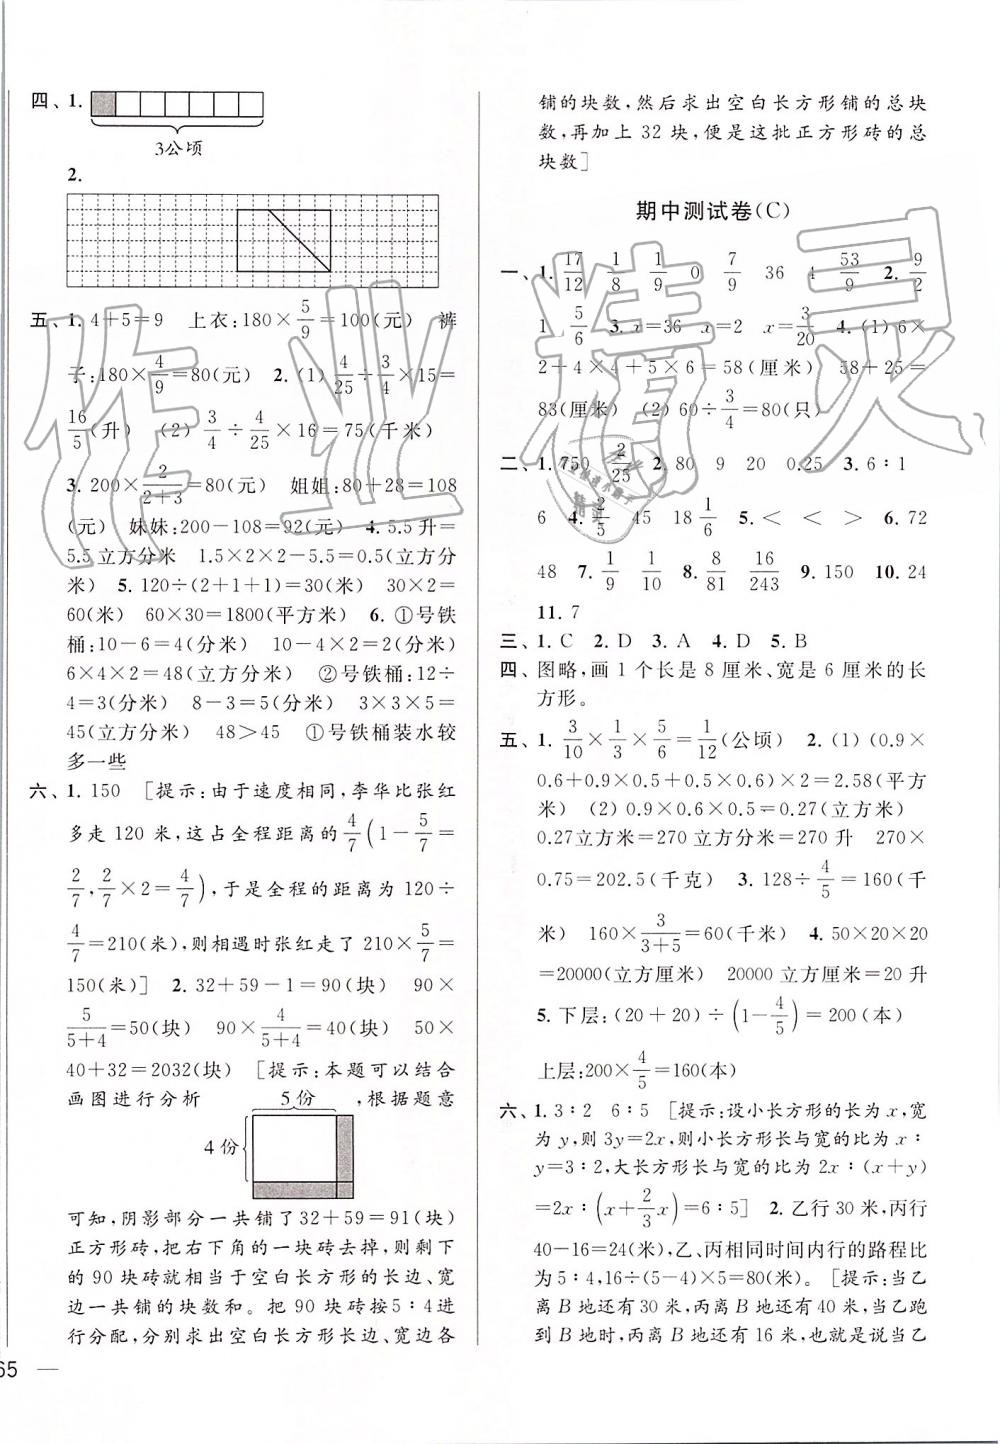 四、1.
3公顷
2.
五、1. 4+5=9 上衣:180×5/9=100(元) 裤
子:180×4/9=80(元) 2. (1) 4/25÷3/4×15=
16/5(升) (2) 3/4÷4/25×16=75(千米)
3. 200×2/(2+3)=80(元) 姐姐:80+28=108
(元) 妹妹:200-108=92(元) 4. 5.5升=
5.5立方分米 1.5×2×2-5.5=0.5(立方分
米) 5. 120÷(2+1+1)=30(米) 30×2=
60(米) 60×30=1800(平方米) 6. ①号铁
桶:10-6=4(分米) 10-4×2=2(分米)
6×4×2=48(立方分米) ②号铁桶:12÷
4=3(分米) 8-3=5(分米) 3×3×5=
45(立方分米) 48>45 ①号铁桶装水较
多一些
六、1. 150 [提示:由于速度相同,李华比张红
多走 120 米,这占全程距离的4/7(1-5/7=
2/7,2/7×2=4/7),于是全程的距离为 120÷
4/7=210(米),则相遇时张红走了 210×5/7=
150(米)] 2. 32+59-1=90(块) 90×
5/(5+4)=50(块) 90×4/(5+4)=40(块) 50×
40+32=2032(块) [提示:本题可以结合
画图进行分析 ,根据题意
5份
4份
可知,阴影部分一共铺了32+59=91(块)
正方形砖,把右下角的一块砖去掉,则剩下
的 90 块砖就相当于空白长方形的长边、宽
边一共铺的块数和。把 90 块砖按5∶4进
行分配,分别求出空白长方形长边、宽边各
65 —
铺的块数,然后求出空白长方形铺的总块
数,再加上 32 块,便是这批正方形砖的总
块数]
期中测试卷(C)
一、1. 17/12 1/8 1/9 0 7/9 36 4 53/9 2. 9/2
1 5/6 3. x=36 x=2 x=3/20 4. (1) 6×
2+4×4+5×6=58(厘米) 58+25=
83(厘米) (2) 60÷3/4=80(只)
二、1. 750 2/25 2. 80 9 20 0.25 3. 6∶1
6 4. 2/5 45 18 1/6 5. < < > 6. 72
48 7. 1/9 1/10 8. 8/81 16/243 9. 150 10. 24
11. 7
三、1. C 2. D 3. A 4. D 5. B
四、图略,画 1 个长是 8 厘米、宽是 6 厘米的长
方形。
五、1. 3/10×1/3×5/6=1/12(公顷) 2. (1) (0.9×
0.6+0.9×0.5+0.6×0.5)×2=2.58(平方
米) (2) 0.9×0.6×0.5=0.27(立方米)
0.27立方米=270立方分米=270升 270×
0.75=202.5(千克) 3. 128÷4/5=160(千
米) 160×3/(3+5)=60(千米) 4. 50×20×20
=20000(立方厘米) 20000立方厘米=20升
5. 下层:(20+20)÷(1-4/5)=200(本)
上层:200×4/5=160(本)
六、1. 3∶2 6∶5 [提示:设小长方形的长为x,宽
为y,则3y=2x,则小长方形长与宽的比为x∶
y=3∶2,大长方形长与宽的比为2x∶(x+y)
=2x∶(x+2/3x)=6∶5] 2. 乙行30米,丙行
40-16=24(米),乙、丙相同时间内行的路程比
为5∶4,16÷(5-4)×5=80(米) [提示:当乙
离B地还有30米,丙离B地还有40米,当乙跑
到B地时,丙离B地还有16米,也就是说当乙
作业精灵